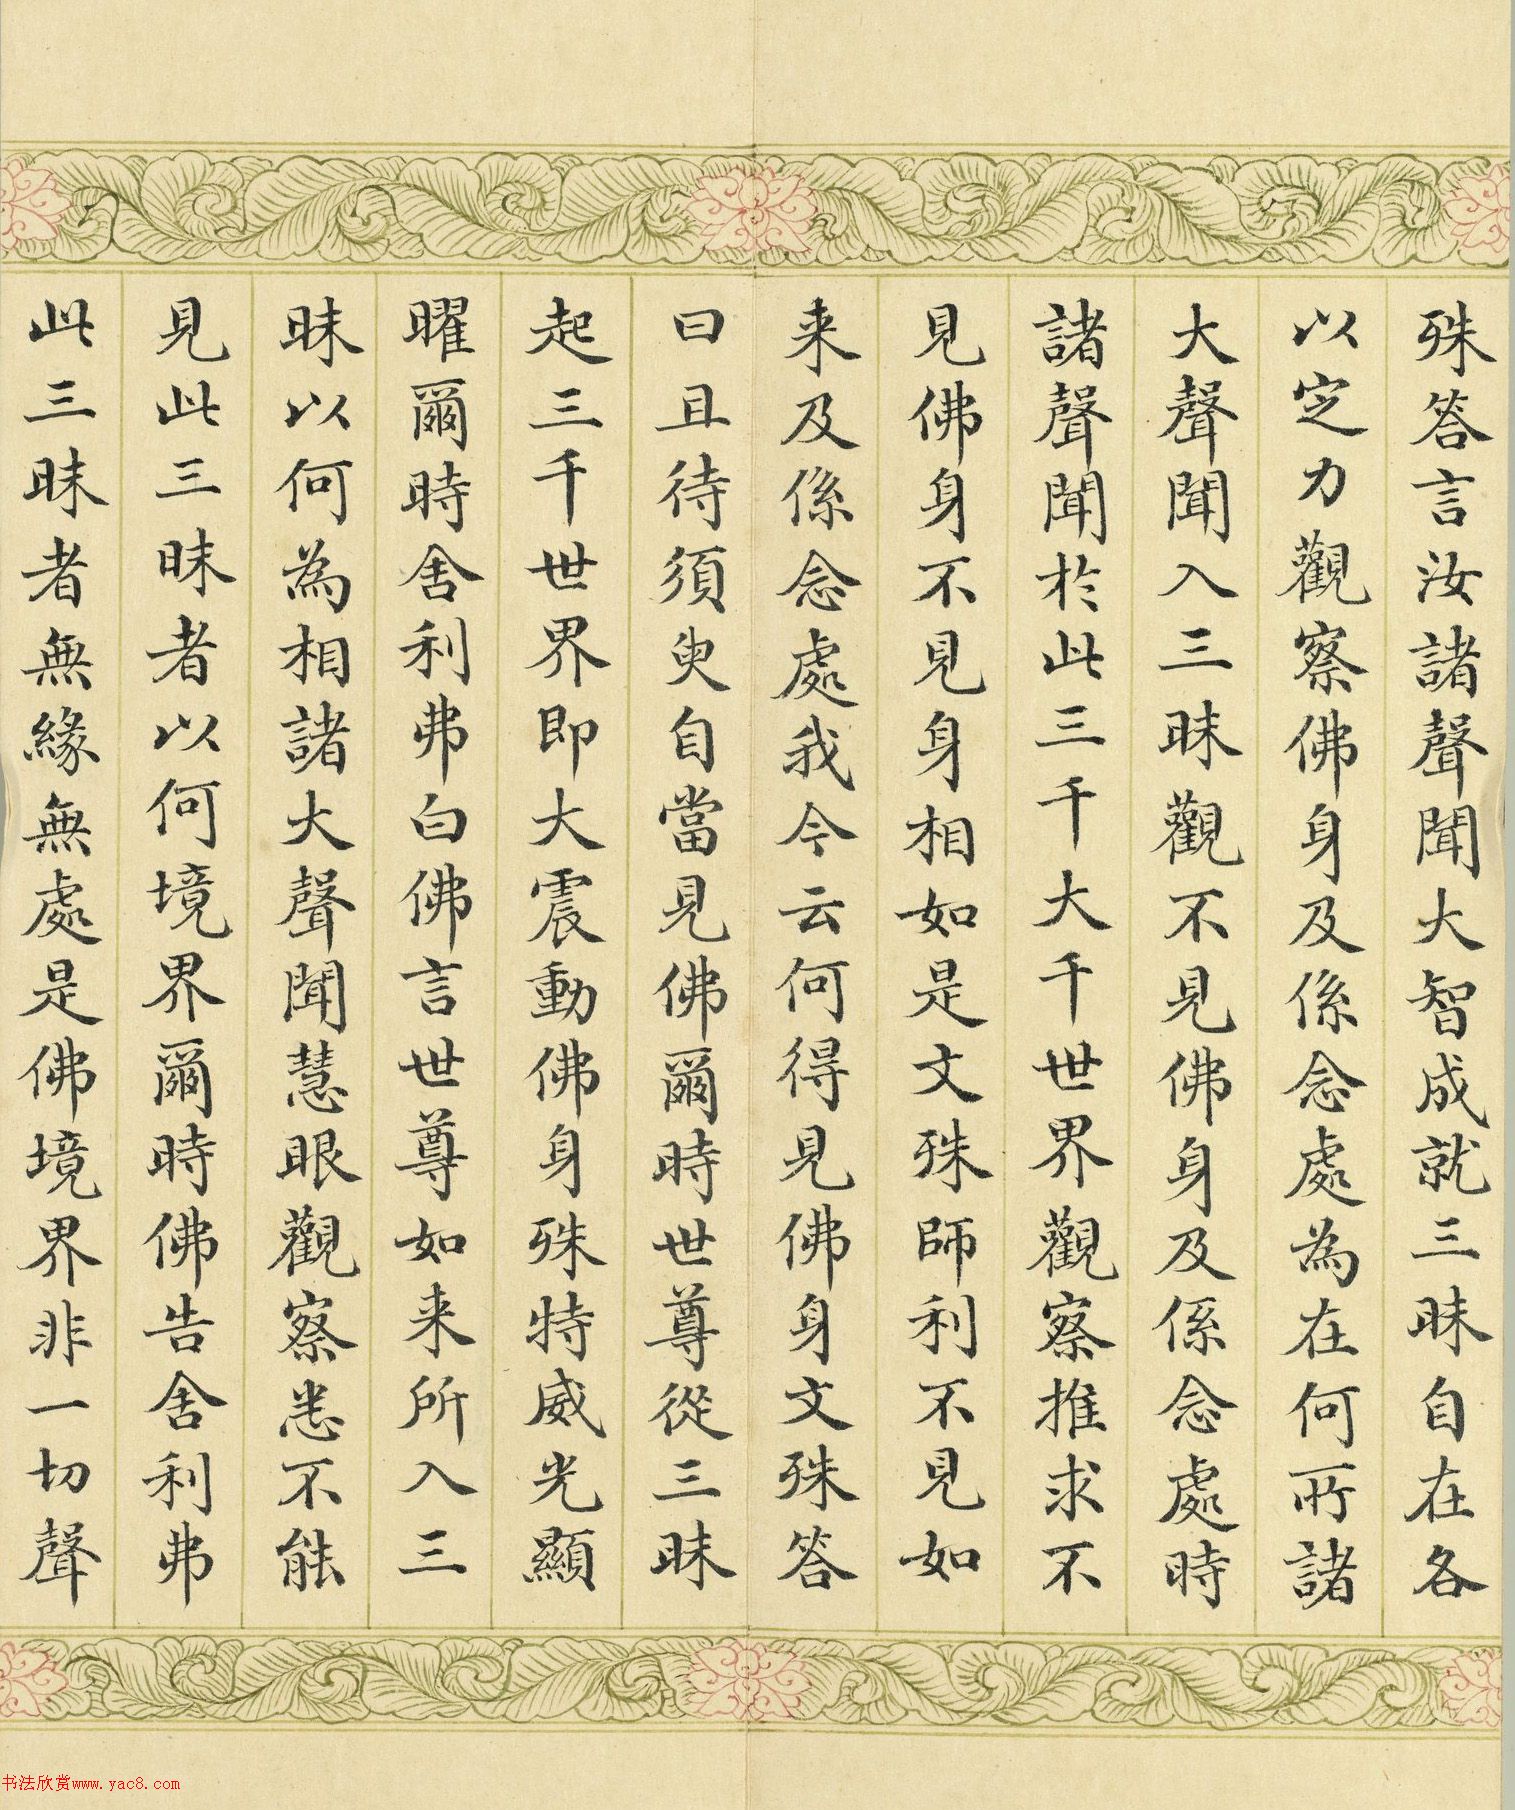 殊答言汝諸聲聞大智成就三昧自在各
以定力觀察佛身及係念處為在何所諸
大聲聞入三昧觀不見佛身及係念處時
諸聲聞於此三千大千世界觀察推求不
見佛身不見身相如是文殊師利不見如
来及係念處我今云何得見佛身文殊答
曰且待須臾自當見佛爾時世尊從三昧
起三千世界即大震動佛身殊特威光顯
曜爾時舍利弗白佛言世尊如来所入三
昧以何為相諸大聲聞慧眼觀察悉不能
見此三昧者以何境界爾時佛告舍利弗
此三昧者無緣無處是佛境界非一切聲
书法欣赏www.yac8.com